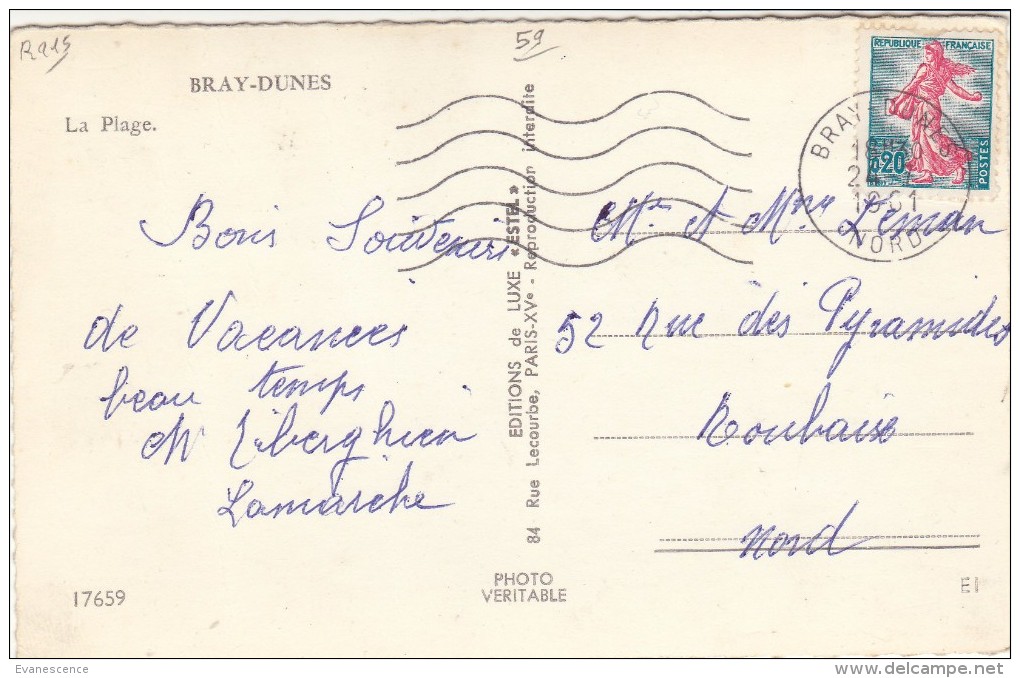 R915
59
BRAY-DUNES
La Plage.
REPUBLIQUE FRANÇAISE
0,20
POSTES
BRAY-DUNES
18H30
24
1961
NORD
Bons Souvenirs
de Vacances
beau temps
M Tiberghien
Lamarche
EDITIONS de LUXE « ESTEL »
84 Rue Lecourbe, PARIS-XVe - Reproduction interdite
Mr et Mme Leman
52 Rue des Pyramides
Roubaix
Nord
PHOTO
VERITABLE
17659
EI
Evanescence
delcampe.net